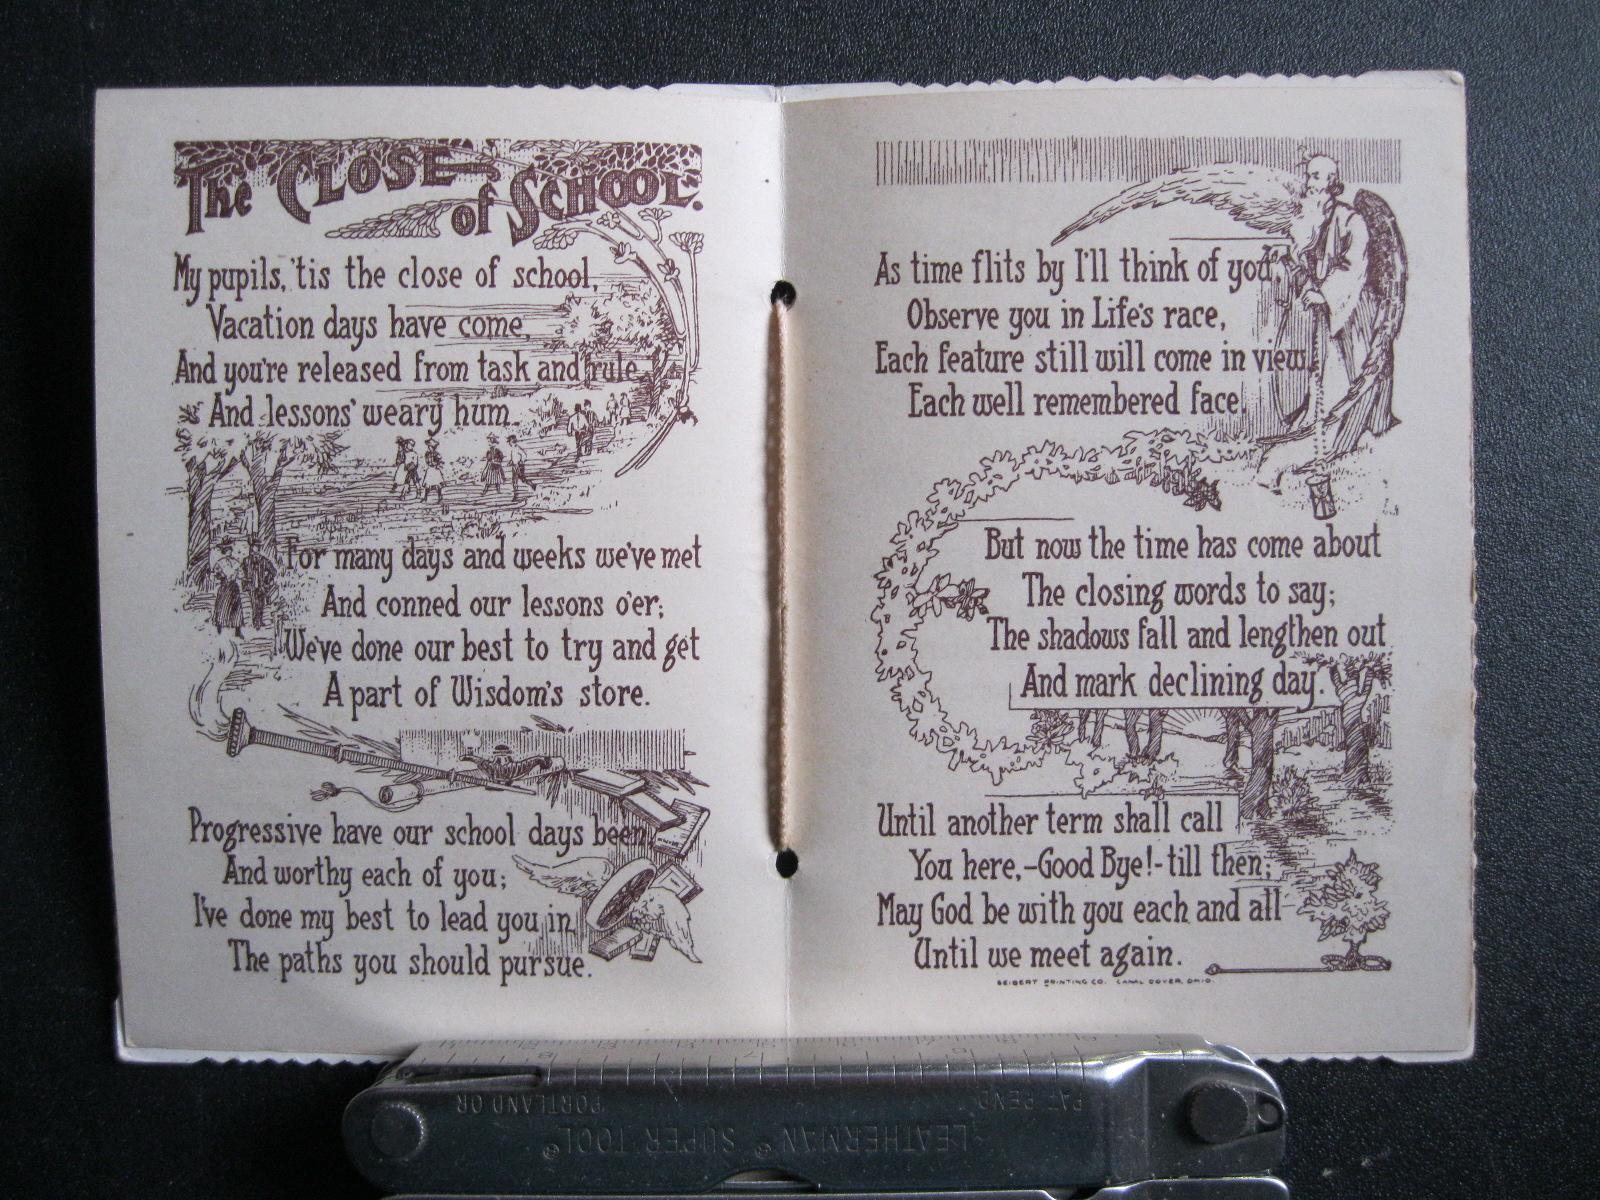 The Close
of School.
My pupils, 'tis the close of school,
Vacation days have come,
And you're released from task and rule
And lessons' weary hum.
For many days and weeks we've met
And conned our lessons o'er;
We've done our best to try and get
A part of Wisdom's store.
Progressive have our school days been,
And worthy each of you;
I've done my best to lead you in
The paths you should pursue.
As time flits by I'll think of you,
Observe you in Life's race,
Each feature still will come in view,
Each well remembered face.
But now the time has come about
The closing words to say;
The shadows fall and lengthen out
And mark declining day.
Until another term shall call
You here,-Good Bye!-till then;
May God be with you each and all
Until we meet again.
SEIBERT PRINTING CO. CANAL DOVER, OHIO.
PORTLAND OR
PAT PEND
LEATHERMAN® SUPER TOOL®